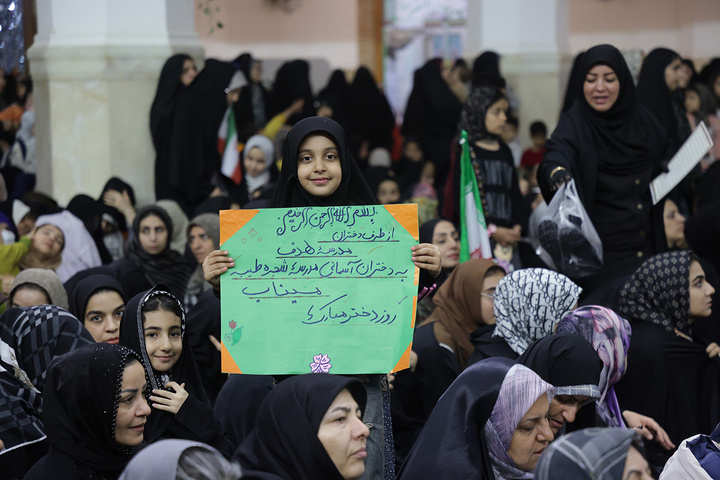 بسم الله الرحمن الرحیم
از طرف دختران
مدرسه هدف
به دختران آسمانی مدرسهٔ شجره طیبه
میناب
روز دختر مبارک